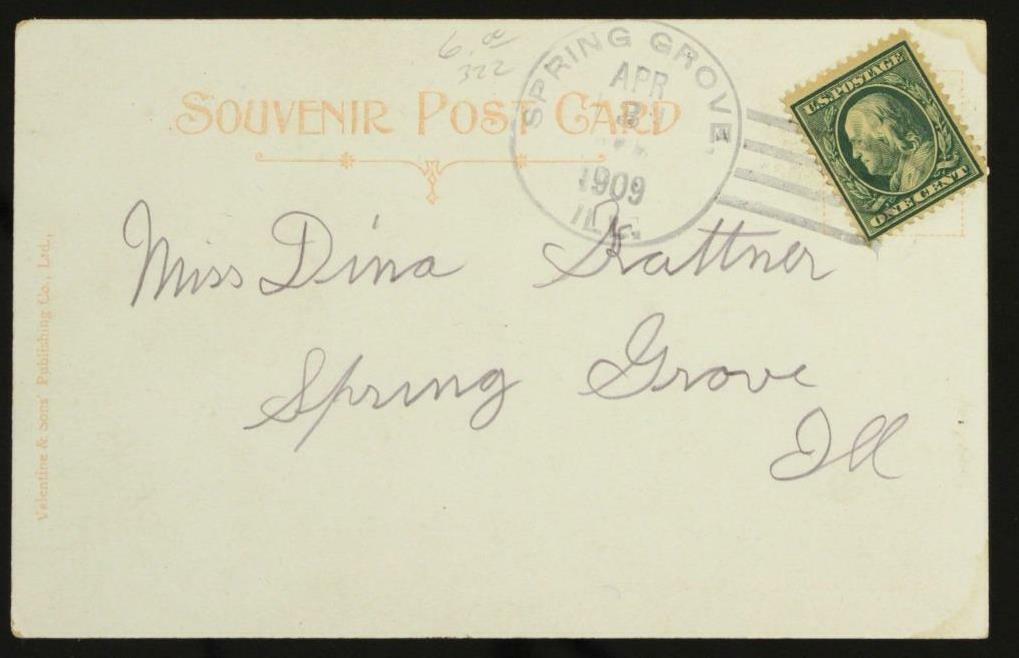 6.00
322
SOUVENIR POST CARD
SPRING GROVE,
APR
3
1909
ILL.
U.S. POSTAGE
ONE CENT
Miss Dina
Spring Grove
Ill
Valentine & Sons' Publishing Co., Ltd.,